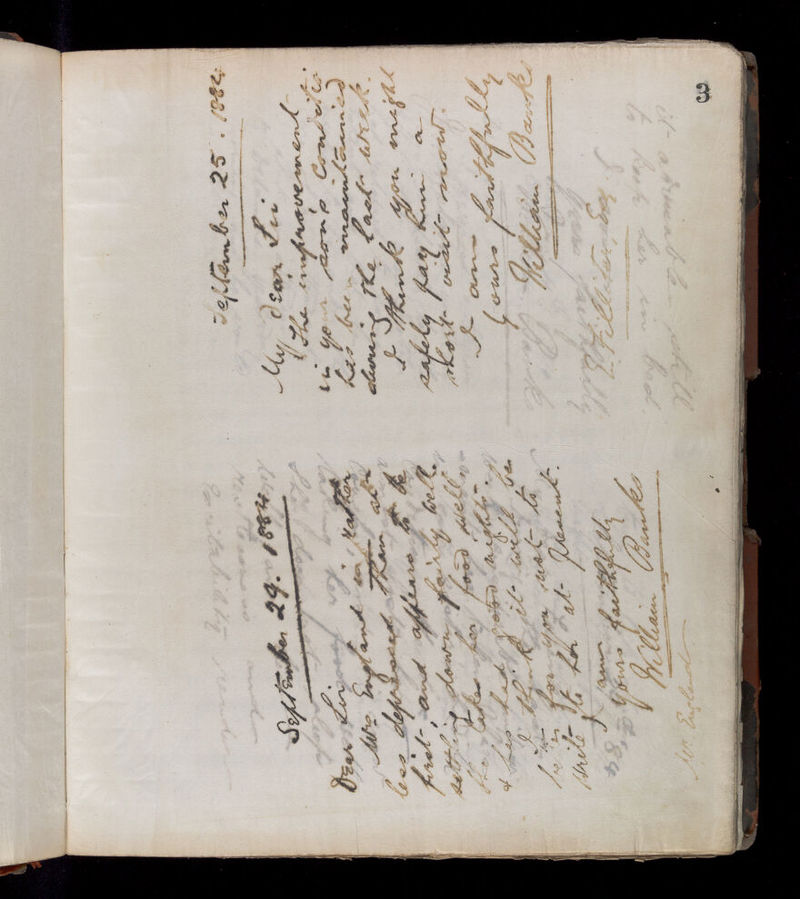 3
September 25. 1884.
My dear Sir
The improvement
in your son's condition
has been maintained
during the last week.
I think you might
safely pay him a
short visit now.
I am
yours faithfully
William Banks
September 29. 1884
Dear Sir
Mrs England is rather
less depressed than at
first, and appears to be
settling down fairly well.
She takes her food well
& has had good nights.
I think it will be
for you not to
write to her at present.
I am
yours faithfully
William Banks
Mr. England